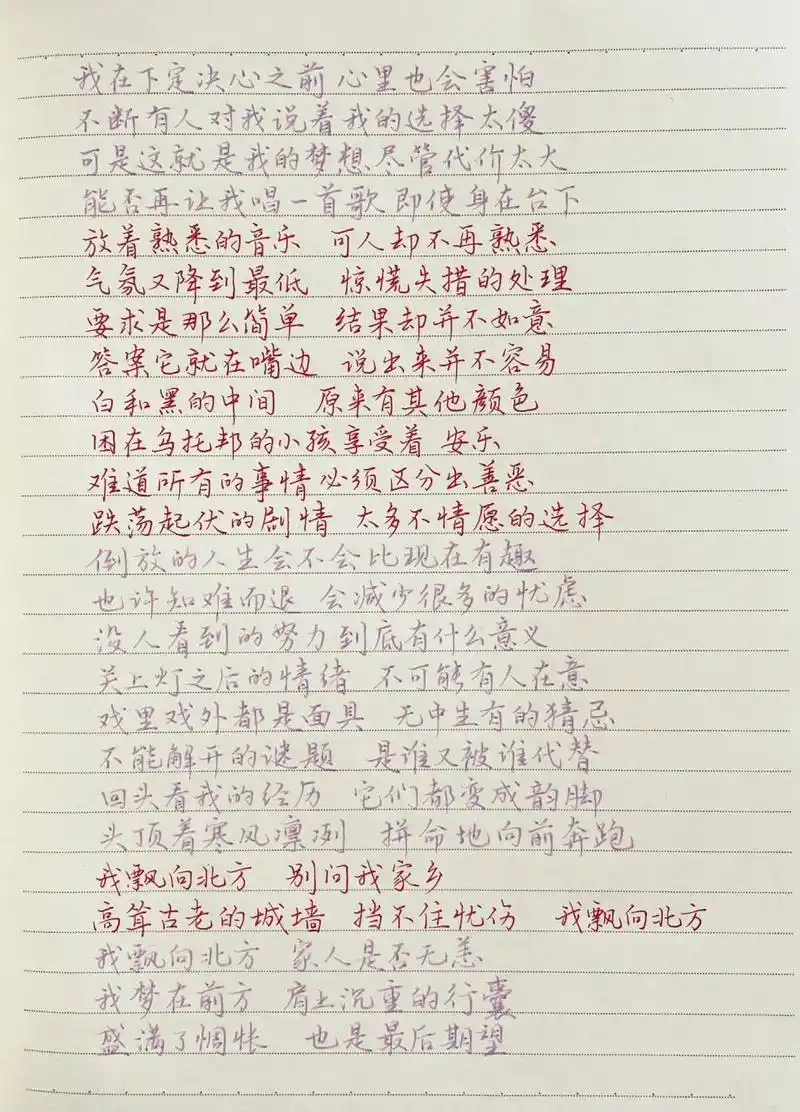 我在下定决心之前 心里也会害怕
不断有人对我说着我的选择太傻
可是这就是我的梦想 尽管代价太大
能否再让我唱一首歌 即使身在台下
放着熟悉的音乐 可人却不再熟悉
气氛又降到最低 惊慌失措的处理
要求是那么简单 结果却并不如意
答案它就在嘴边 说出来并不容易
白和黑的中间 原来有其他颜色
困在乌托邦的小孩享受着 安乐
难道所有的事情必须区分出善恶
跌荡起伏的剧情 太多不情愿的选择
倒放的人生会不会比现在有趣
也许知难而退 会减少很多的忧虑
没人看到的努力到底有什么意义
关上灯之后的情绪 不可能有人在意
戏里戏外都是面具 无中生有的猜忌
不能解开的谜题 是谁又被谁代替
回头看我的经历 它们都变成韵脚
头顶着寒风凛冽 拼命地向前奔跑
我飘向北方 别问我家乡
高耸古老的城墙 挡不住忧伤 我飘向北方
我飘向北方 家人是否无恙
我梦在前方 肩上沉重的行囊
盛满了惆怅 也是最后期望